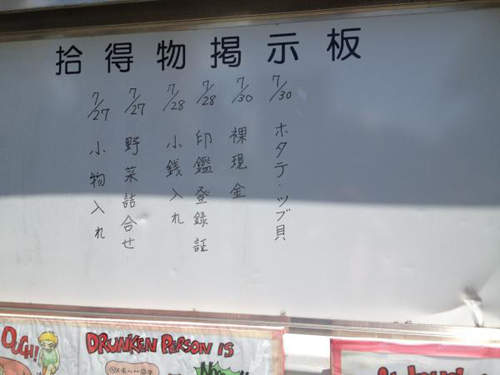 拾得物掲示板
7/30 ホタテ・ツブ貝
7/30 裸現金
7/28 印鑑登録証
7/28 小銭入れ
7/27 野菜詰合せ
7/27 小物入れ
OUCH!
DRUNKEN PERSON IS